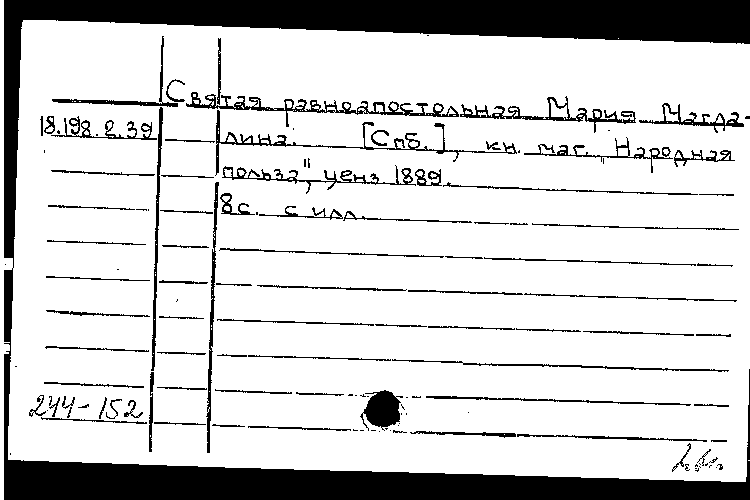 Святая равноапостольная Мария Магда-
18.198.2.39 лина. [Спб.], кн. маг. „Народная
польза", ценз 1889.
8с. с илл.
244-152